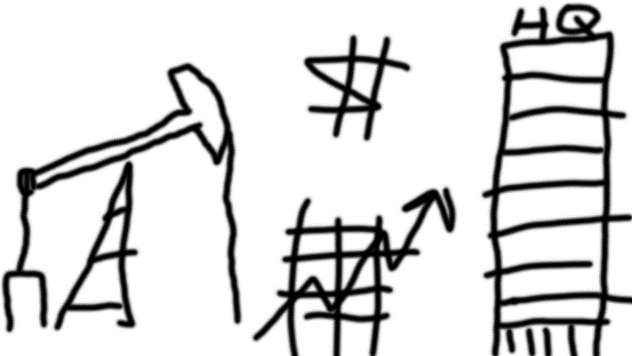 HQ
$